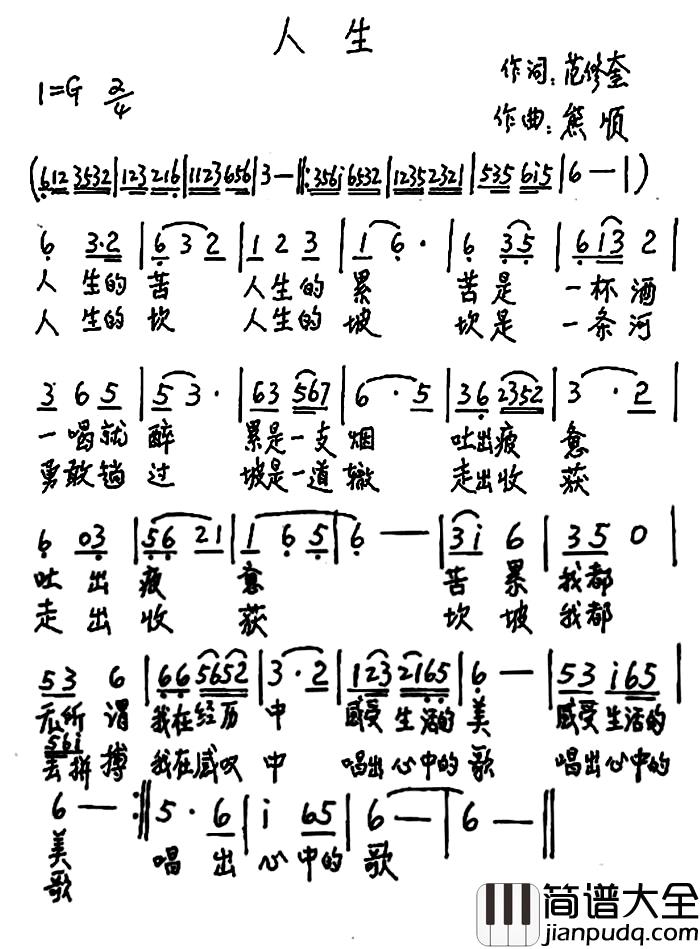 人生
1=G 2/4
作词:范修奎
作曲:熊顺
(612 3532|123 216|1123 656|3—‖:356i 6532|1235 2321|535 6i5|6—|)
6 3·2|6 3 2|1 2 3|1 6·|6 35|613 2|
人 生的 苦 人生的 累 苦是 一杯酒
人 生的 坎 人生的 坡 坎是 一条河
3 6 5|5 3·|63 567|6·5|36 2352|3·2|
一喝就 醉 累是一支 烟 吐出疲 惫
勇敢蹚 过 坡是一道 辙 走出收 获
6 03|56 21|1 6 5|6—|3i 6|35 0|
吐 出 疲 惫 苦 累 我都
走 出 收 获 坎 坡 我都
53 6|66 5652|3·2|123 2165|6—|53 i65|
无所 谓 我在经历 中 感受 生活的 美 感受生活的
56i
去拼 搏 我在感叹 中 唱出心中的 歌 唱出心中的
6—:‖5·6|i 65|6—|6—‖
美 唱 出 心 中的 歌
歌
简谱大全
jianpudq.com